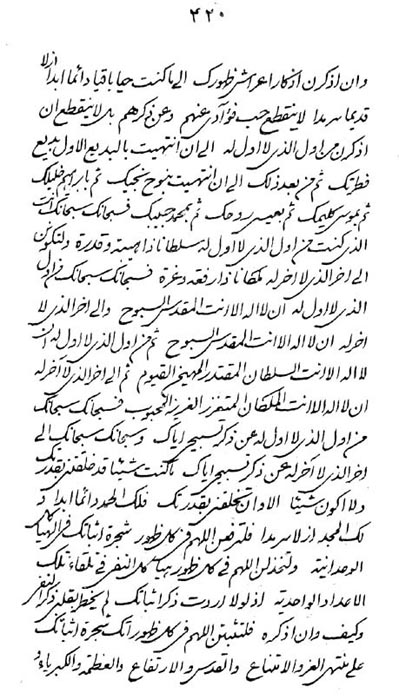 ۴۲۰
وان اذكرن اذكار اعراش ظهورك الى ما كنت حيا باقيا دائما ابدا ازلا
قديما سرمدا لا ينقطع حب فؤادى عنهم وعن ذكرهم بل لا ينقطع ان
اذكرن من اول الذى لا اول له الى ان انتهيت بالبديع الاول بديع
فطرتك ثم من بعد ذلك الى ان انتهيت بنوح نجيك ثم بابراهيم خليلك
ثم بموسى كليمك ثم بعيسى روحك ثم بمحمد حبيبك فسبحانك سبحانك انت
الذى كنت من اول الذى لا اول له سلطانا ذا هيبته وقدرة ولتكونن
الى اخر الذى لا اخر له مكانا ذا رفعه وعزة فسبحانك سبحانك من اول
الذى لا اول له ان لا اله الا انت المقدس السبوح والى اخر الذى لا
اخر له ان لا اله الا انت المقدس السبوح ثم من اول الذى لا اول له ان
لا اله الا انت السلطان المقتدر المهيمن القيوم ثم الى اخر الذى لا اخر له
ان لا اله الا انت الملطان المتعزز العزيز المحبوب فسبحانك سبحانك
من اول الذى لا اول له عن ذكر تسبيح اياك وسبحانك سبحانك الى
اخر الذى لا اخر له عن ذكر تسبيح اياك ما كنت شيئا قد خلقتنى بقدرتك
ولا اكون شيئا الا وان تخلقنى بقدرتك فلك الحمد دائما ابدا و
لك المجد ازلا سرمدا فلترفعن اللهم فى كل ظهور شجرة اثباتك فى الهياكل
الوحدانية ولتخذلن اللهم فى كل ظهور هياكل النفى فى تلقاء تلك
الاعداد الواحدية اذ لولا اردت ذكر اثباتك لم يخطر بقلبى ذكر النفى
وكيف وان اذكره فلتثبتن اللهم فى كل ظهوراتك شجرة اثباتك
على منتهى العز والامتناع والقدس والارتفاع والعظمة والكبرياء و